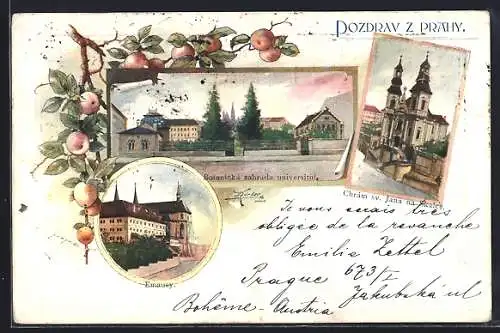 POZDRAV Z PRAHY.
Botanická zahrada universitní.
Chrám sv. Jana na Skalce.
Emausy.
Je vous serais très
obligée de la revanche
Emilia Zettel
Prague 673/I
Jakubská ul
Bohême - Austria